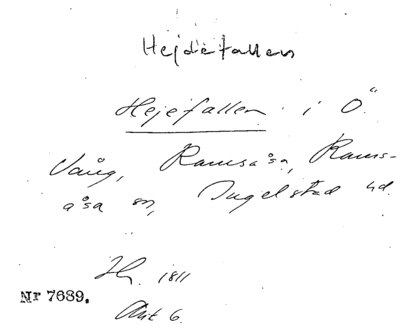 Hejdefallen
Hejefallen i Ö.
Vång, Ramsåsa, Rams-
åsa sn, Ingelstad hd.
1811
Nr 7689.
Akt 6